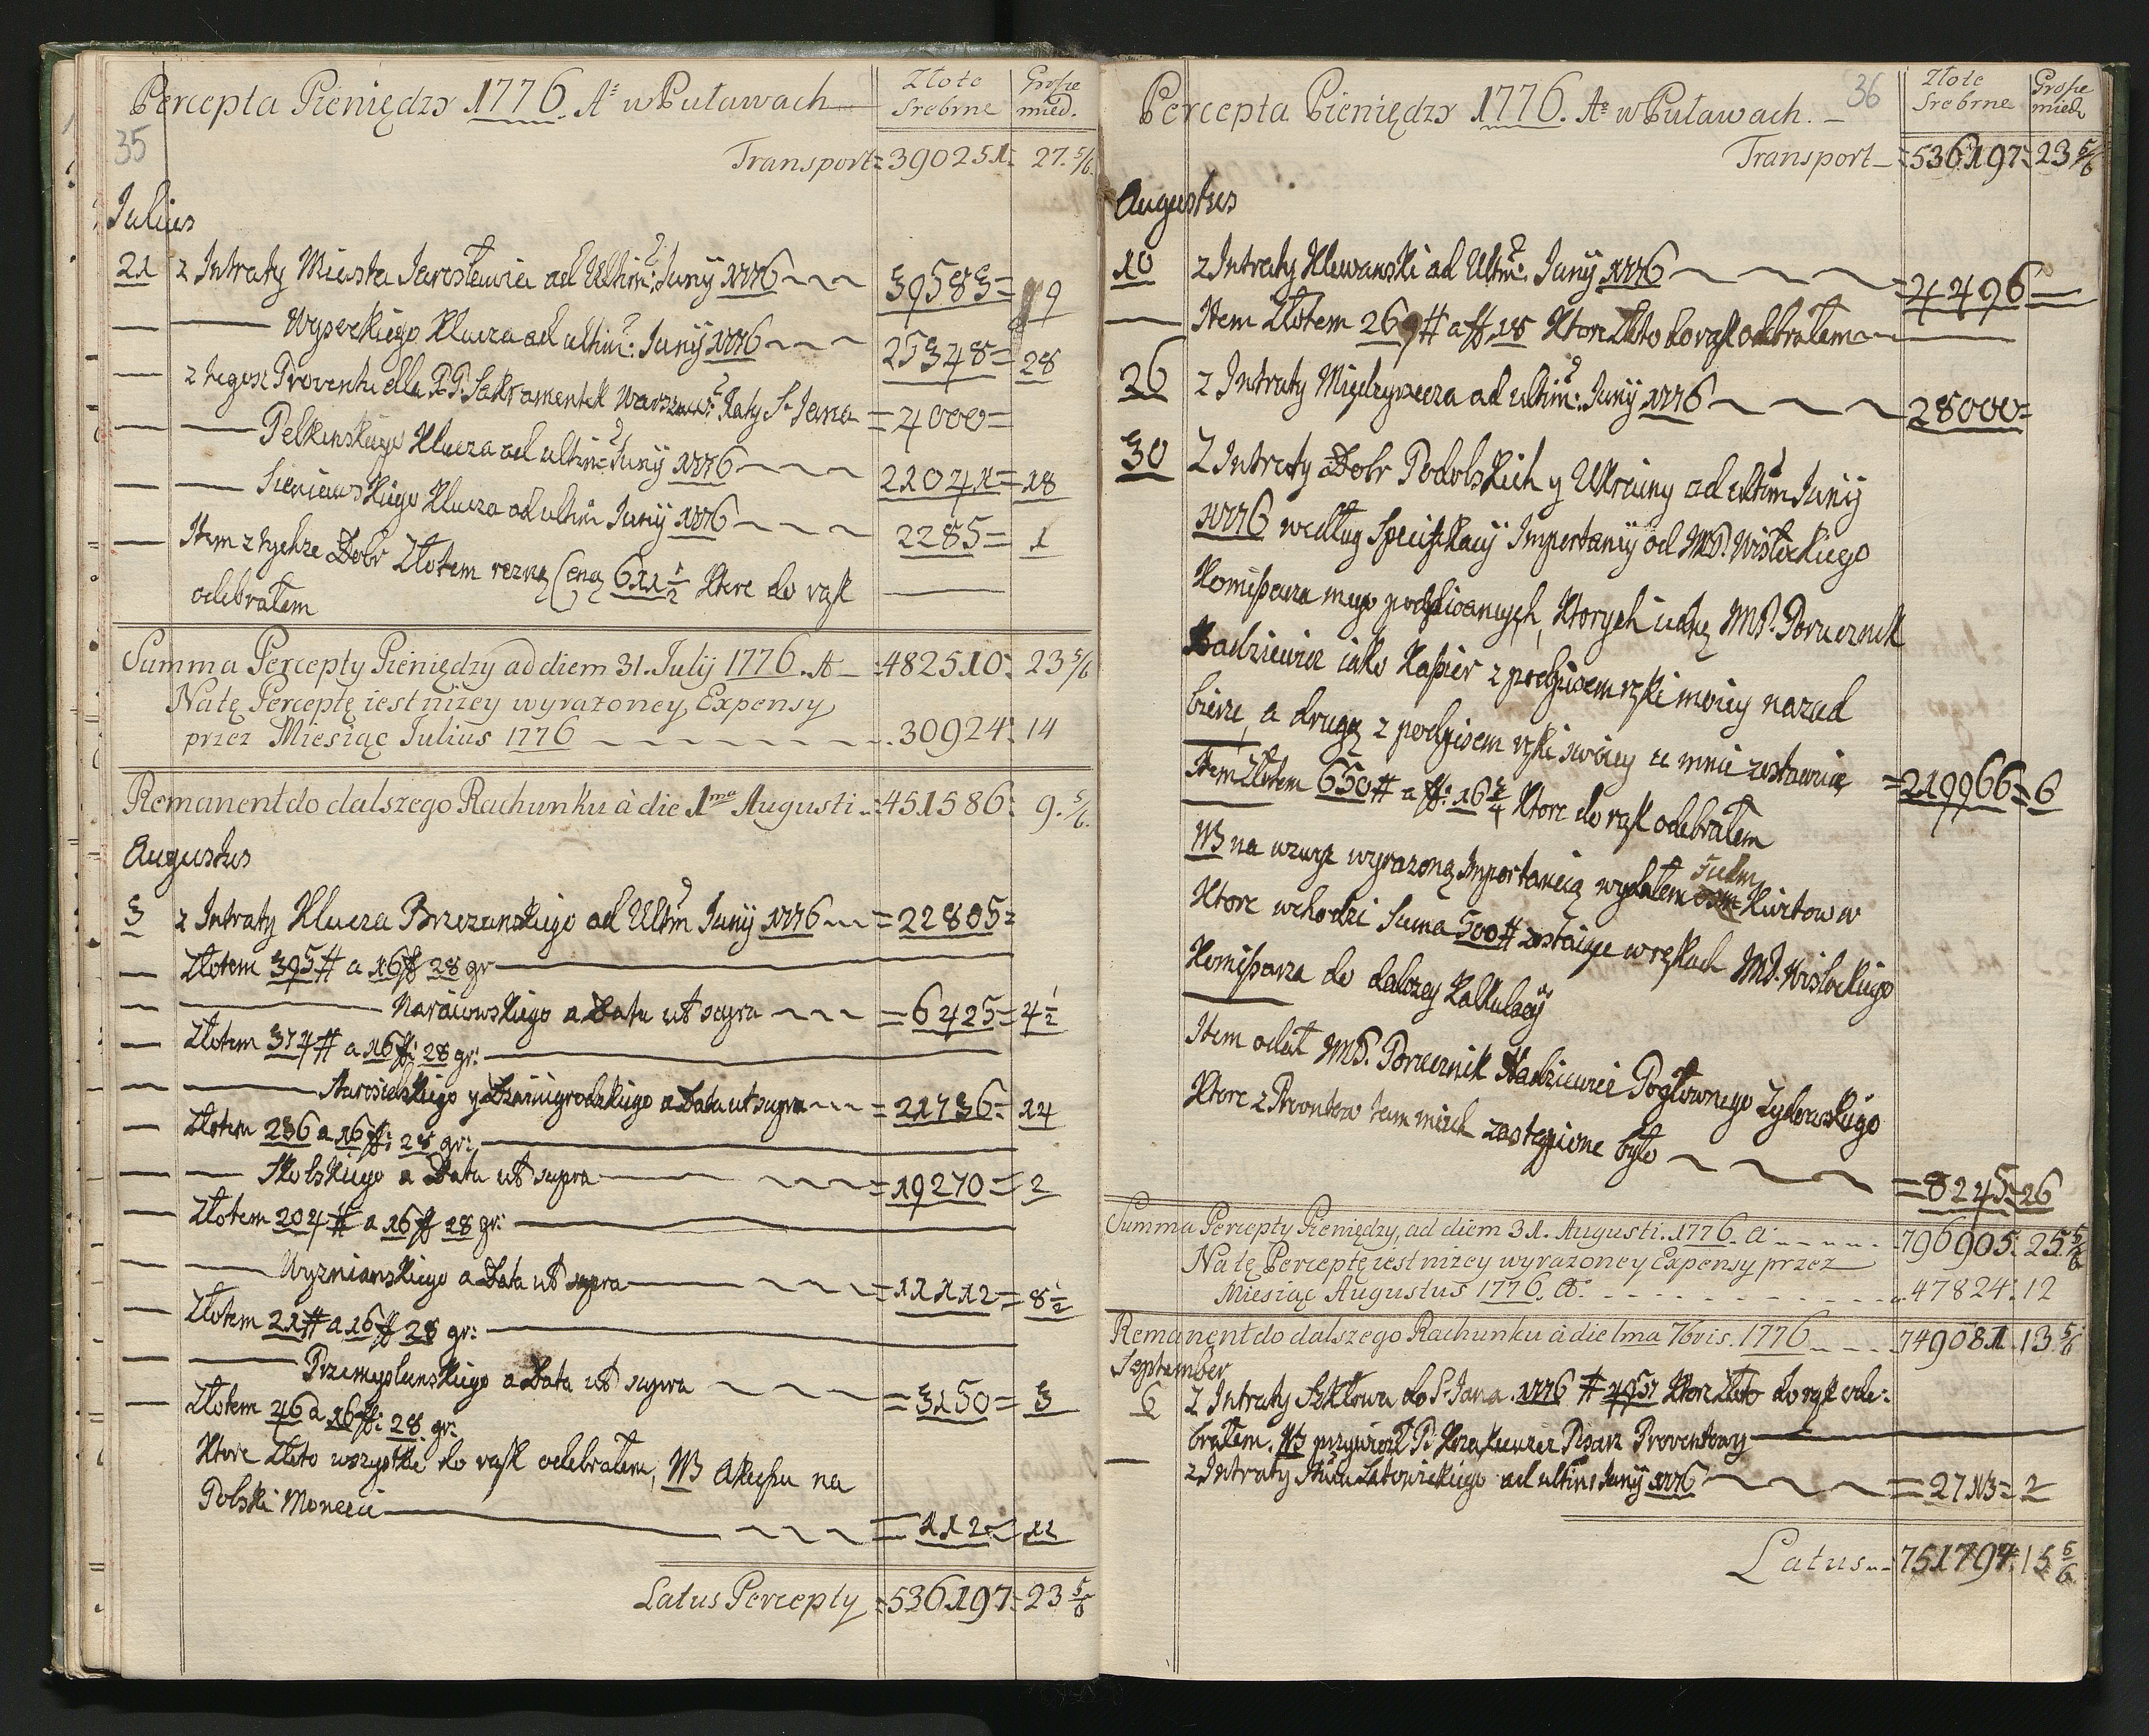 Percepta Pieniędzy 1776. Aº w Puławach
Złote Srebrne
Grosze mied.
35
Transport = 390251 = 27. 5/6
Julius
21 z Intraty Miasta Jarosławia ad Ultim: Junij 1776 39583 = 19
Wysockiego Klucza ad ultim: Junij 1776 25348 = 28
z tegoż Proventu dla PP. Sakramentek Warszaw: Raty S. Jana = 4000 =
Pełkinskiego Klucza ad ultim: Junij 1776 21041 = 18
Sieniawskiego Klucza ad ultim Junij 1776 2285 = 1
Item z tychże Dobr Złotem 611 1/2 Ktore do rąk
odebrałem
Summa Percepty Pieniędzy ad diem 31. Julij 1776. A = 482510 = 23 5/6
Na tę Perceptę iest niżey wyrażoney Expensy
przez Miesiąc Julius 1776 30924: 14
Remanent do dalszego Rachunku à die 1ma Augusti = 451586: 9. 5/6
Augustus
3 z Intraty Klucza Brzezanskiego ad Ultim Junij 1776 = 22805 =
Złotem 395 # a 16 ff 28 gr
Naraiowskiego a Data ut supra = 6425 = 4 1/2
Złotem 374 # a 16 ff: 28 gr:
Starosielskiego y a Data ut supra = 21736 = 14
Złotem 236 a 16 ff: 28 gr:
Skolskiego a Data ut supra = 19270 = 2
Złotem 204 # a 16 ff 28 gr:
Wyznianskiego a Data ut supra = 11112 = 8 1/2
Złotem 21 # a 16 ff 28 gr:
Przemyslanskiego a Data ut supra = 3150 = 3
Złotem 46 a 16 ff: 28 gr:
Ktore Złoto wszystkie do rąk odebrałem, NB na
Polski Monecie = 112 = 11
Latus Percepty = 536197 = 23 5/6
Percepta Pieniędzy 1776. Aº w Puławach.
36
Złote Srebrne
Grosze mied
Transport = 536197 = 23 5/6
Augustus
10 z Intraty Klewanski ad Ultim: Junij 1776 = 4496
Item Złotem 269 # a ff. 18 Ktore Złoto do rąk odebrałem
26 z Intraty Międzyrzecza ad ultim: Junij 1776 28000 =
30 Z Intraty Dobr Podolskich y Ukrainy ad ultim Junij
1776 według Specifikacij Importancij od MP. Wisłockiego
Komisarza mego podpisanych, Ktorych iedną MP. Porucznik
Radziewicz iako Kasier z podpisem ręki moiey nazad
bierze, a drugą z podpisem ręki swoiey u mnie zostawuie = 219966 = 6
Item Złotem 650 # a ff: 16 3/4 Ktore do rąk odebrałem
NB na wzwyż wyrażoną Importancią wydałem siedm Kwitow w
Ktore wchodzi Suma 500 # zostaiące w rękach MP. Wisłockiego
Komisarza do dalszey Kalkulacij
Item oddał MP. Porucznik Radziewicz Pogłownego Zydowskiego
Ktore z Prowentow tam zastąpione było = 8245 = 26
Summa Percepty Pieniędzy, ad diem 31. Augusti. 1776. A. 796905. 25. 5/6
Na tę Perceptę iest niżey wyrażoney Expensy przez
Miesiąc Augustus 1776. A. 47824: 12
Remanent do dalszego Rachunku à die 1ma 7bris. 1776 749081. 13 5/6
September
6 z Intraty Szkłowa do S. Jana. 1776 # 4957 Ktore Złoto do rąk ode:
brałem. NB przywiozł P. Pisarz Proventowy
z Intraty Latowickiego ad ultim Junij 1776 = 2713 = 2
Latus 751794: 15 5/6